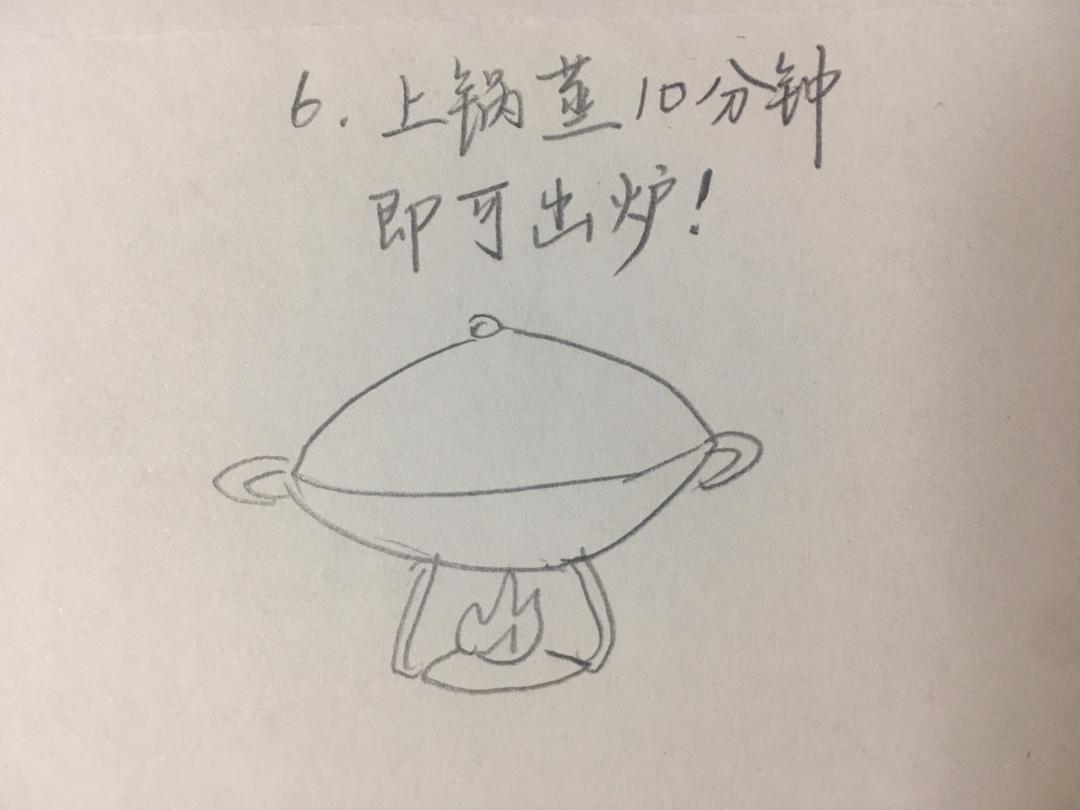 6. 上锅蒸10分钟
即可出炉!